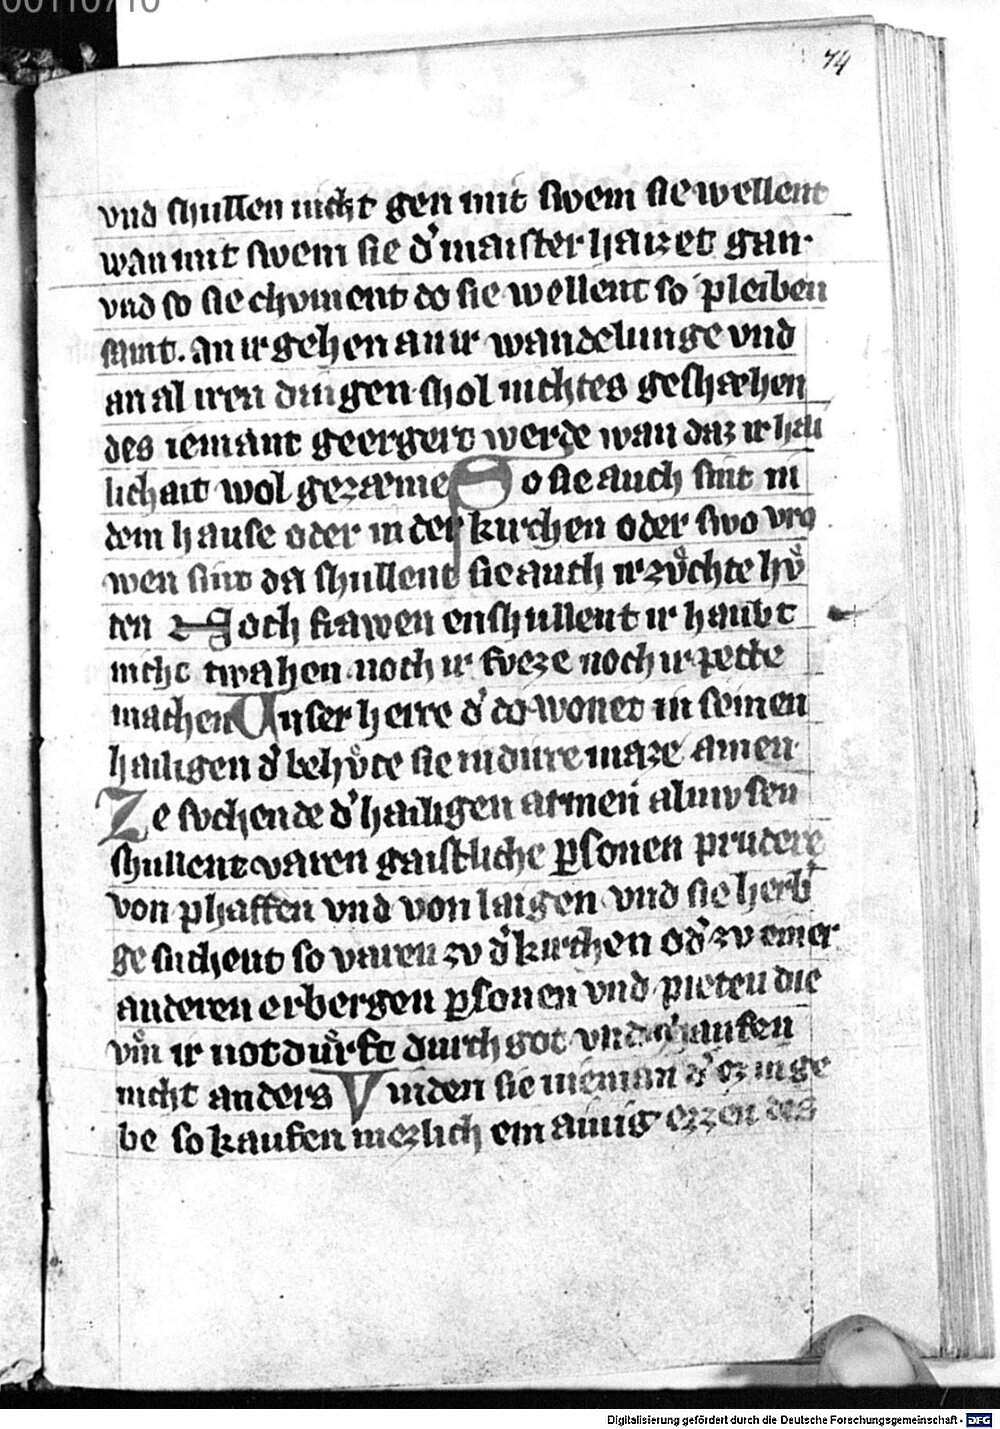 00110710
74
vnd shullen nicht gen mit swem sie wellent
wan mit swem sie d' maister haizet gan·
vnd so sie choment do sie wellent so pleiben
samt. an ir gehen an ir wandelunge vnd
an al iren dingen shol nichtes geshæhen
des iemant geergert werde wan daz ir hæi
lichait wol gezæme So sie auch sint in
dem hause oder in der kirchen oder swo vro
wen sint da shullent sie auch ir zvͦchte hvͦ
ten Noch frawen enshullent ir haubt
nicht twahen noch ir fveze noch ir pette
machen Vnser herre d' do wonet in seinen
hailigen d' behvͦte sie in dirre maze amen·
Ze svchende d' hailigen armen almvsen
shullent varen gaistliche p̱sonen prudere
von phaffen vnd von laigen vnd sie herb'
ge suchent so varen zv d' kirchen od' zv einer
anderen erbergen p̱sonen vnd pieten die
vm̄ ir notduͦrft durch got vnd
nicht anders Vinden sie nieman d' ez in ge
be so kaufen mezlich ein ainig ezzen des
Digitalisierung gefördert durch die Deutsche Forschungsgemeinschaft - DFG